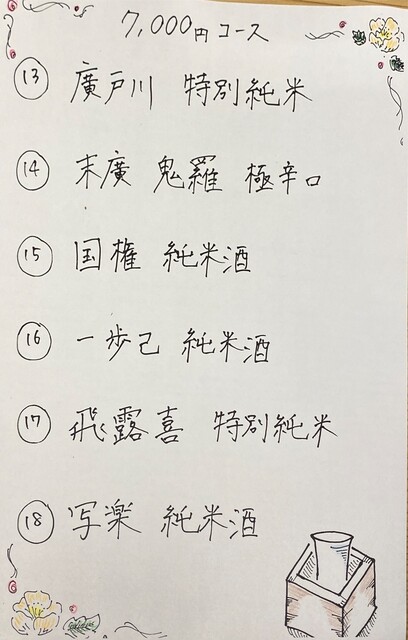 7,000円コース
⑬ 廣戸川 特別純米
⑭ 末廣 鬼羅 極辛口
⑮ 国権 純米酒
⑯ 一歩己 純米酒
⑰ 飛露喜 特別純米
⑱ 写楽 純米酒